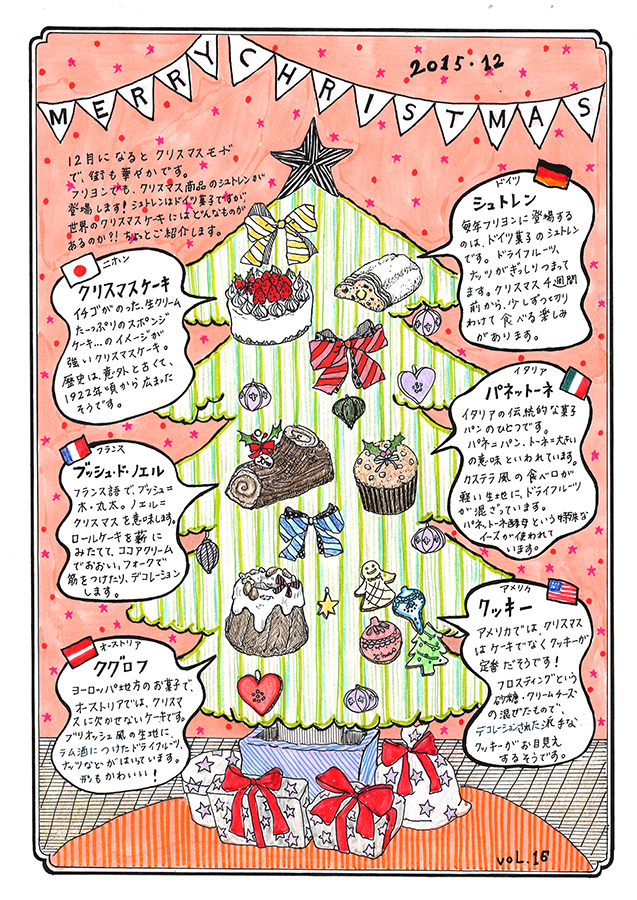 MERRY CHRISTMAS
2015.12
12月になると クリスマスモード
で、街も華やかです。
フリヨンでも、クリスマス商品のシュトレンが
登場します！シュトレンはドイツ菓子ですが、
世界のクリスマスケーキにはどんなものが
あるのか?! ちょっとご紹介します。
ドイツ
シュトレン
毎年フリヨンに登場する
のは、ドイツ菓子のシュトレン
です。ドライフルーツ、
ナッツがぎっしりつまって
ます。クリスマス4週間
前から、少しずつ切り
わけて 食べる楽しみ
があります。
ニホン
クリスマスケーキ
イチゴがのった、生クリーム
たーっぷりのスポンジ
ケーキ…のイメージが
強いクリスマスケーキ。
歴史は、意外と古くて、
1922年頃から広まった
そうです。
イタリア
パネットーネ
イタリアの伝統的な菓子
パンのひとつです。
パネ=パン、トーネ=大きい
の意味といわれています。
カステラ風の食べ口が
軽い生地に、ドライフルーツ
が混ざっています。
パネットーネ酵母という特殊な
イーズが使われて
います。
フランス
ブッシュ・ド・ノエル
フランス語で、ブッシュ=
木・丸太。ノエル=
クリスマスを意味します。
ロールケーキを薪に
みたてて、ココアクリーム
でおおい、フォークで
筋をつけたり、デコレーション
します。
アメリカ
クッキー
アメリカでは、クリスマス
はケーキでなくクッキーが
定番だそうです！
フロスティングという
砂糖・クリームチーズ
の混ぜたもので、
デコレーションされた派手な
クッキーがお目見え
するそうです。
オーストリア
クグロフ
ヨーロッパ地方のお菓子で、
オーストリアでは、クリスマ
スに欠かせないケーキです。
ブリオッシュ風の生地に、
ラム酒につけたドライフルーツ、
ナッツなどがはいっています。
形もかわいい！
VOL.16